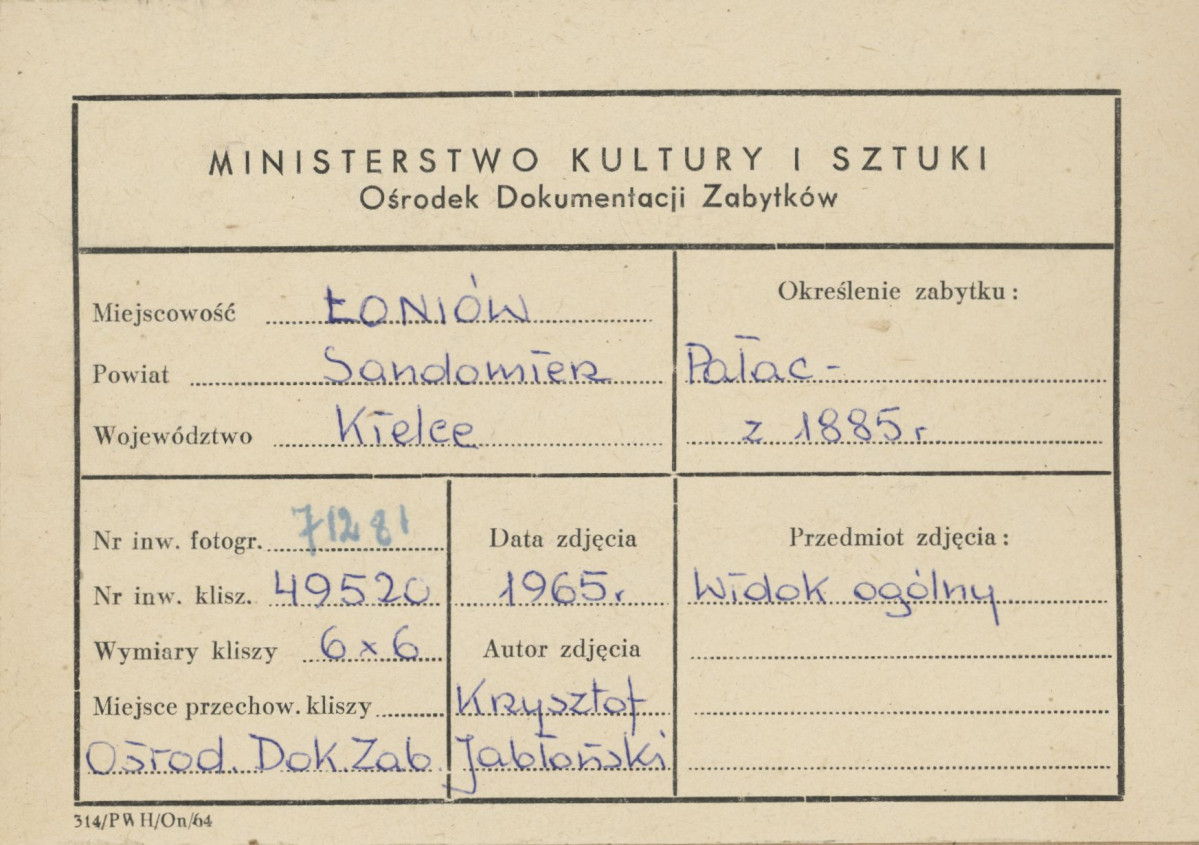 MINISTERSTWO KULTURY I SZTUKI
Ośrodek Dokumentacji Zabytków
Miejscowość ŁONIÓW
Powiat Sandomierz
Województwo Kielce
Określenie zabytku:
Pałac -
z 1885 r.
Nr inw. fotogr. 71281
Nr inw. klisz. 49520
Wymiary kliszy 6 x 6
Miejsce przechow. kliszy
Ośrod. Dok. Zab.
Data zdjęcia
1965 r.
Autor zdjęcia
Krzysztof
Jabłoński
Przedmiot zdjęcia:
Widok ogólny
314/PWH/On/64